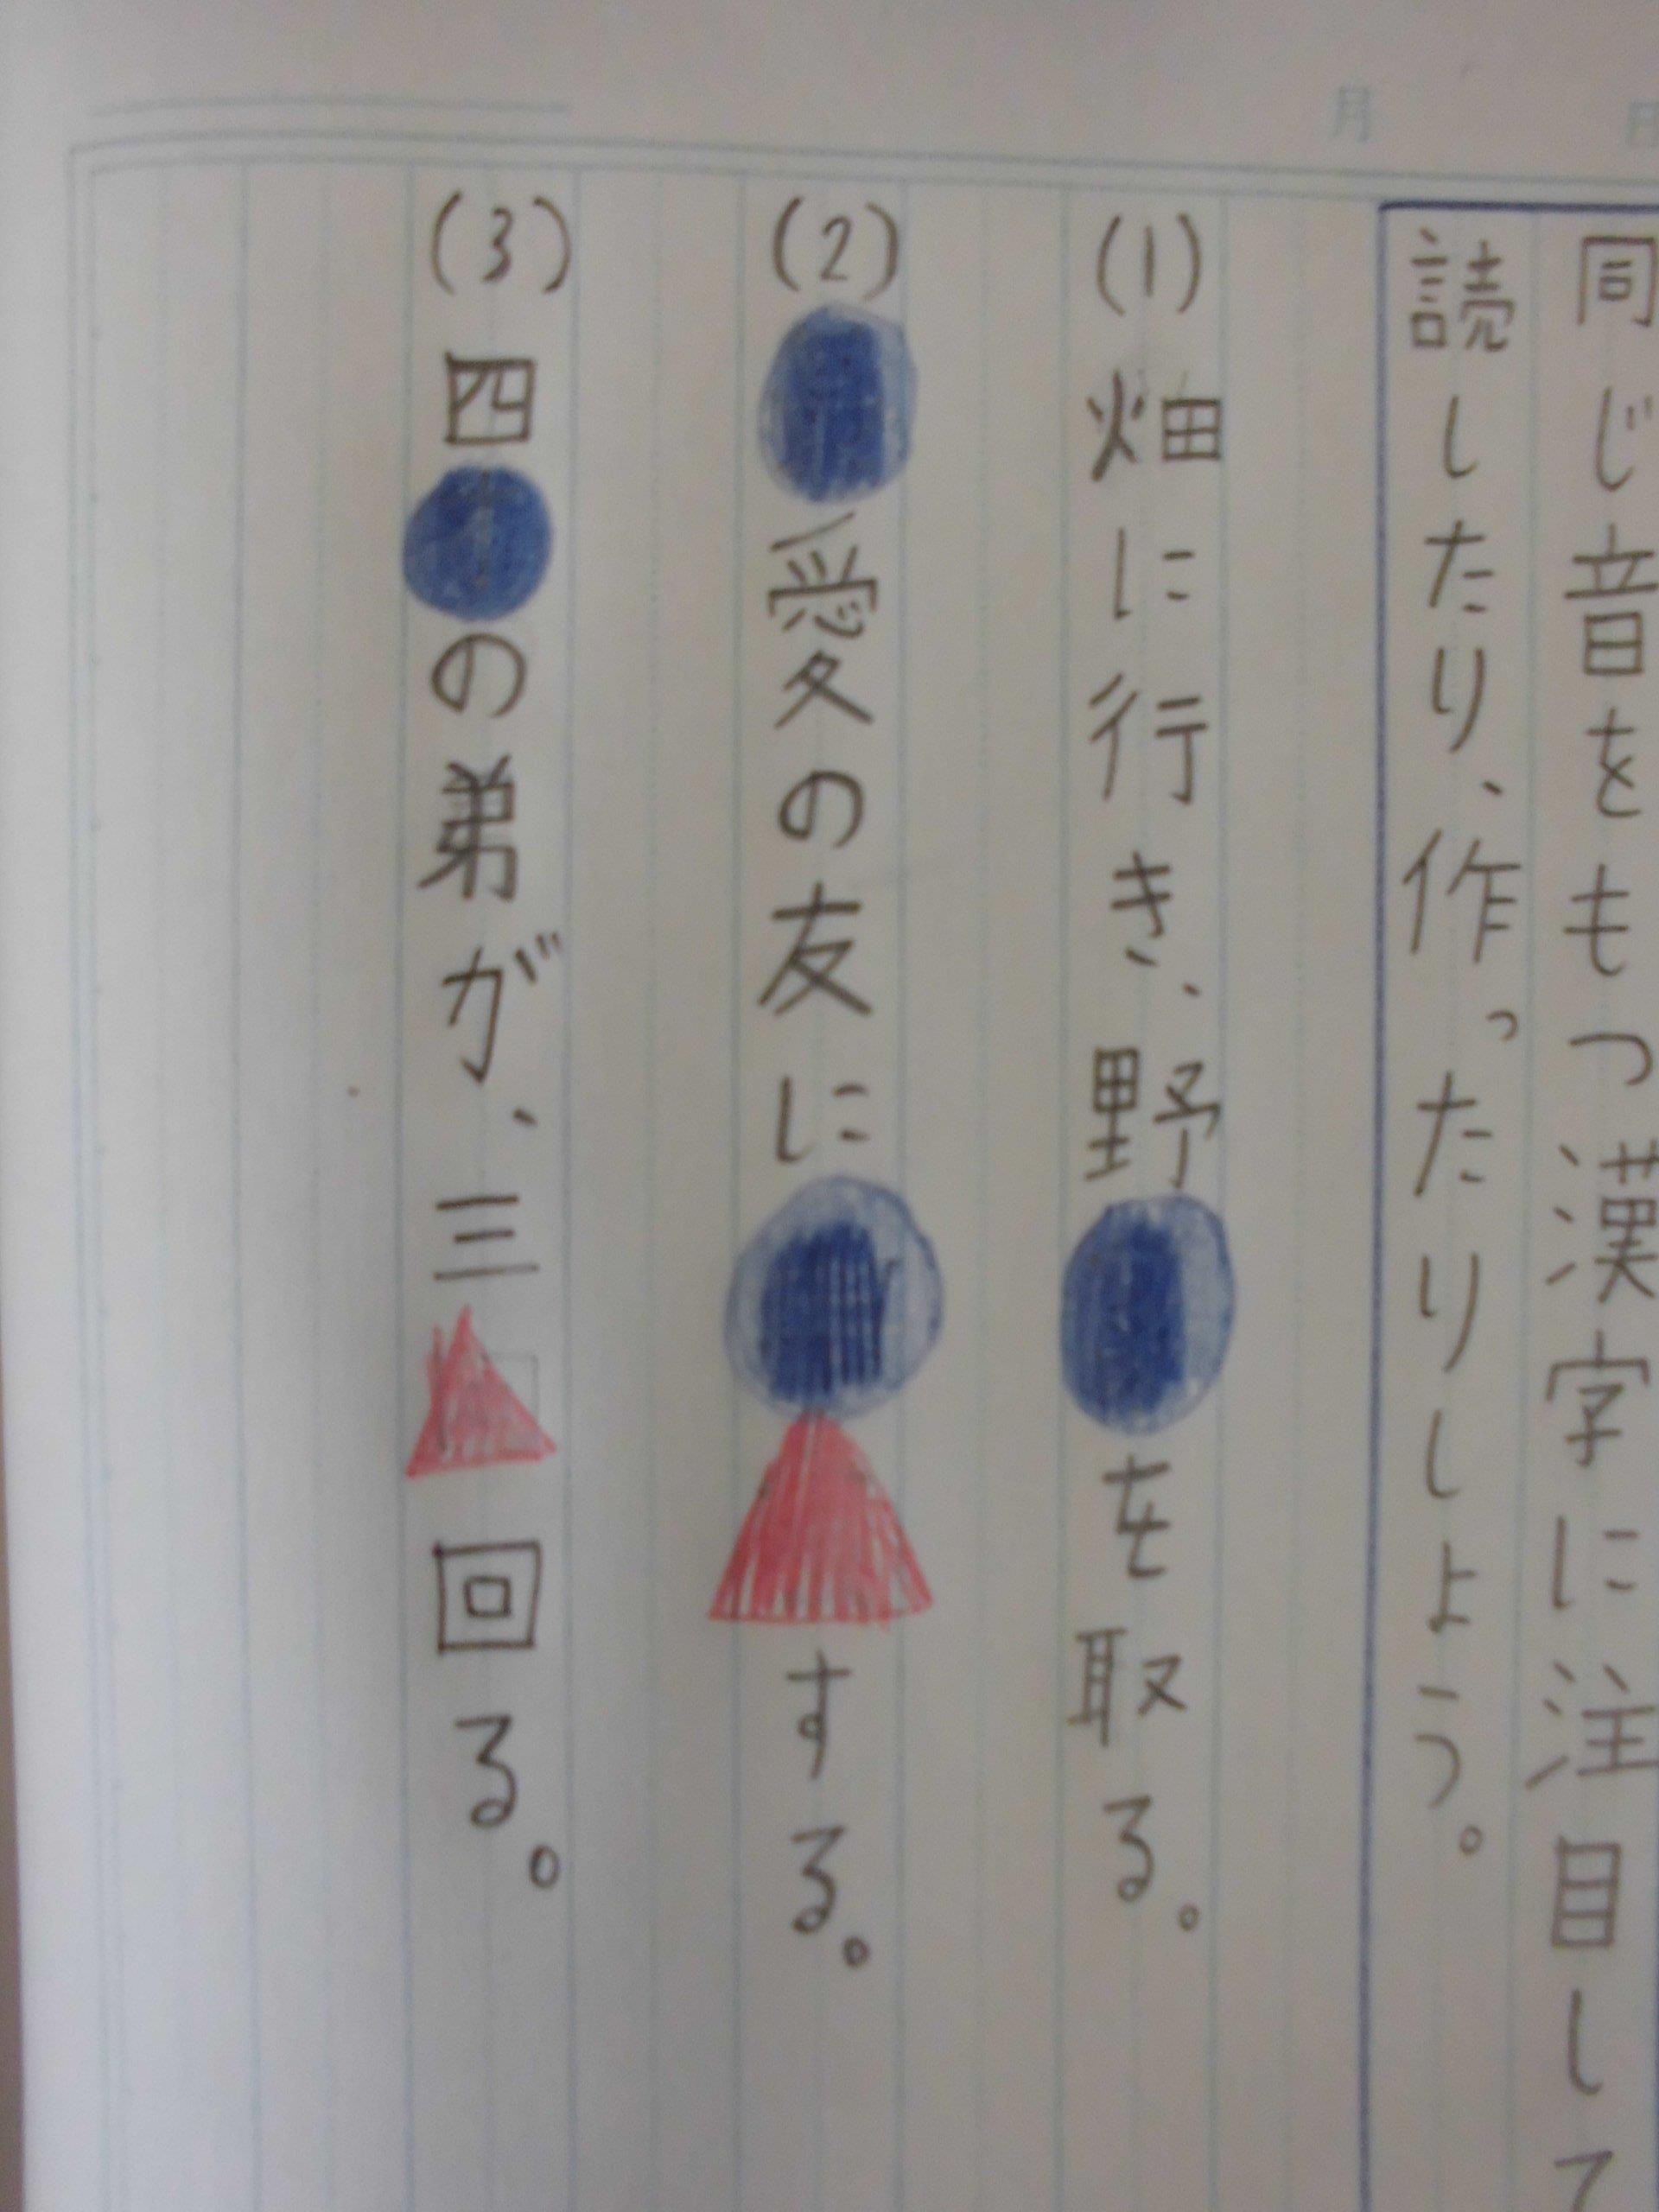 月 日
同じ音をもつ漢字に注目して
読したり、作ったりしよう。
(1)畑に行き、野を取る。
(2)愛の友にする。
(3)四の弟が、三回る。